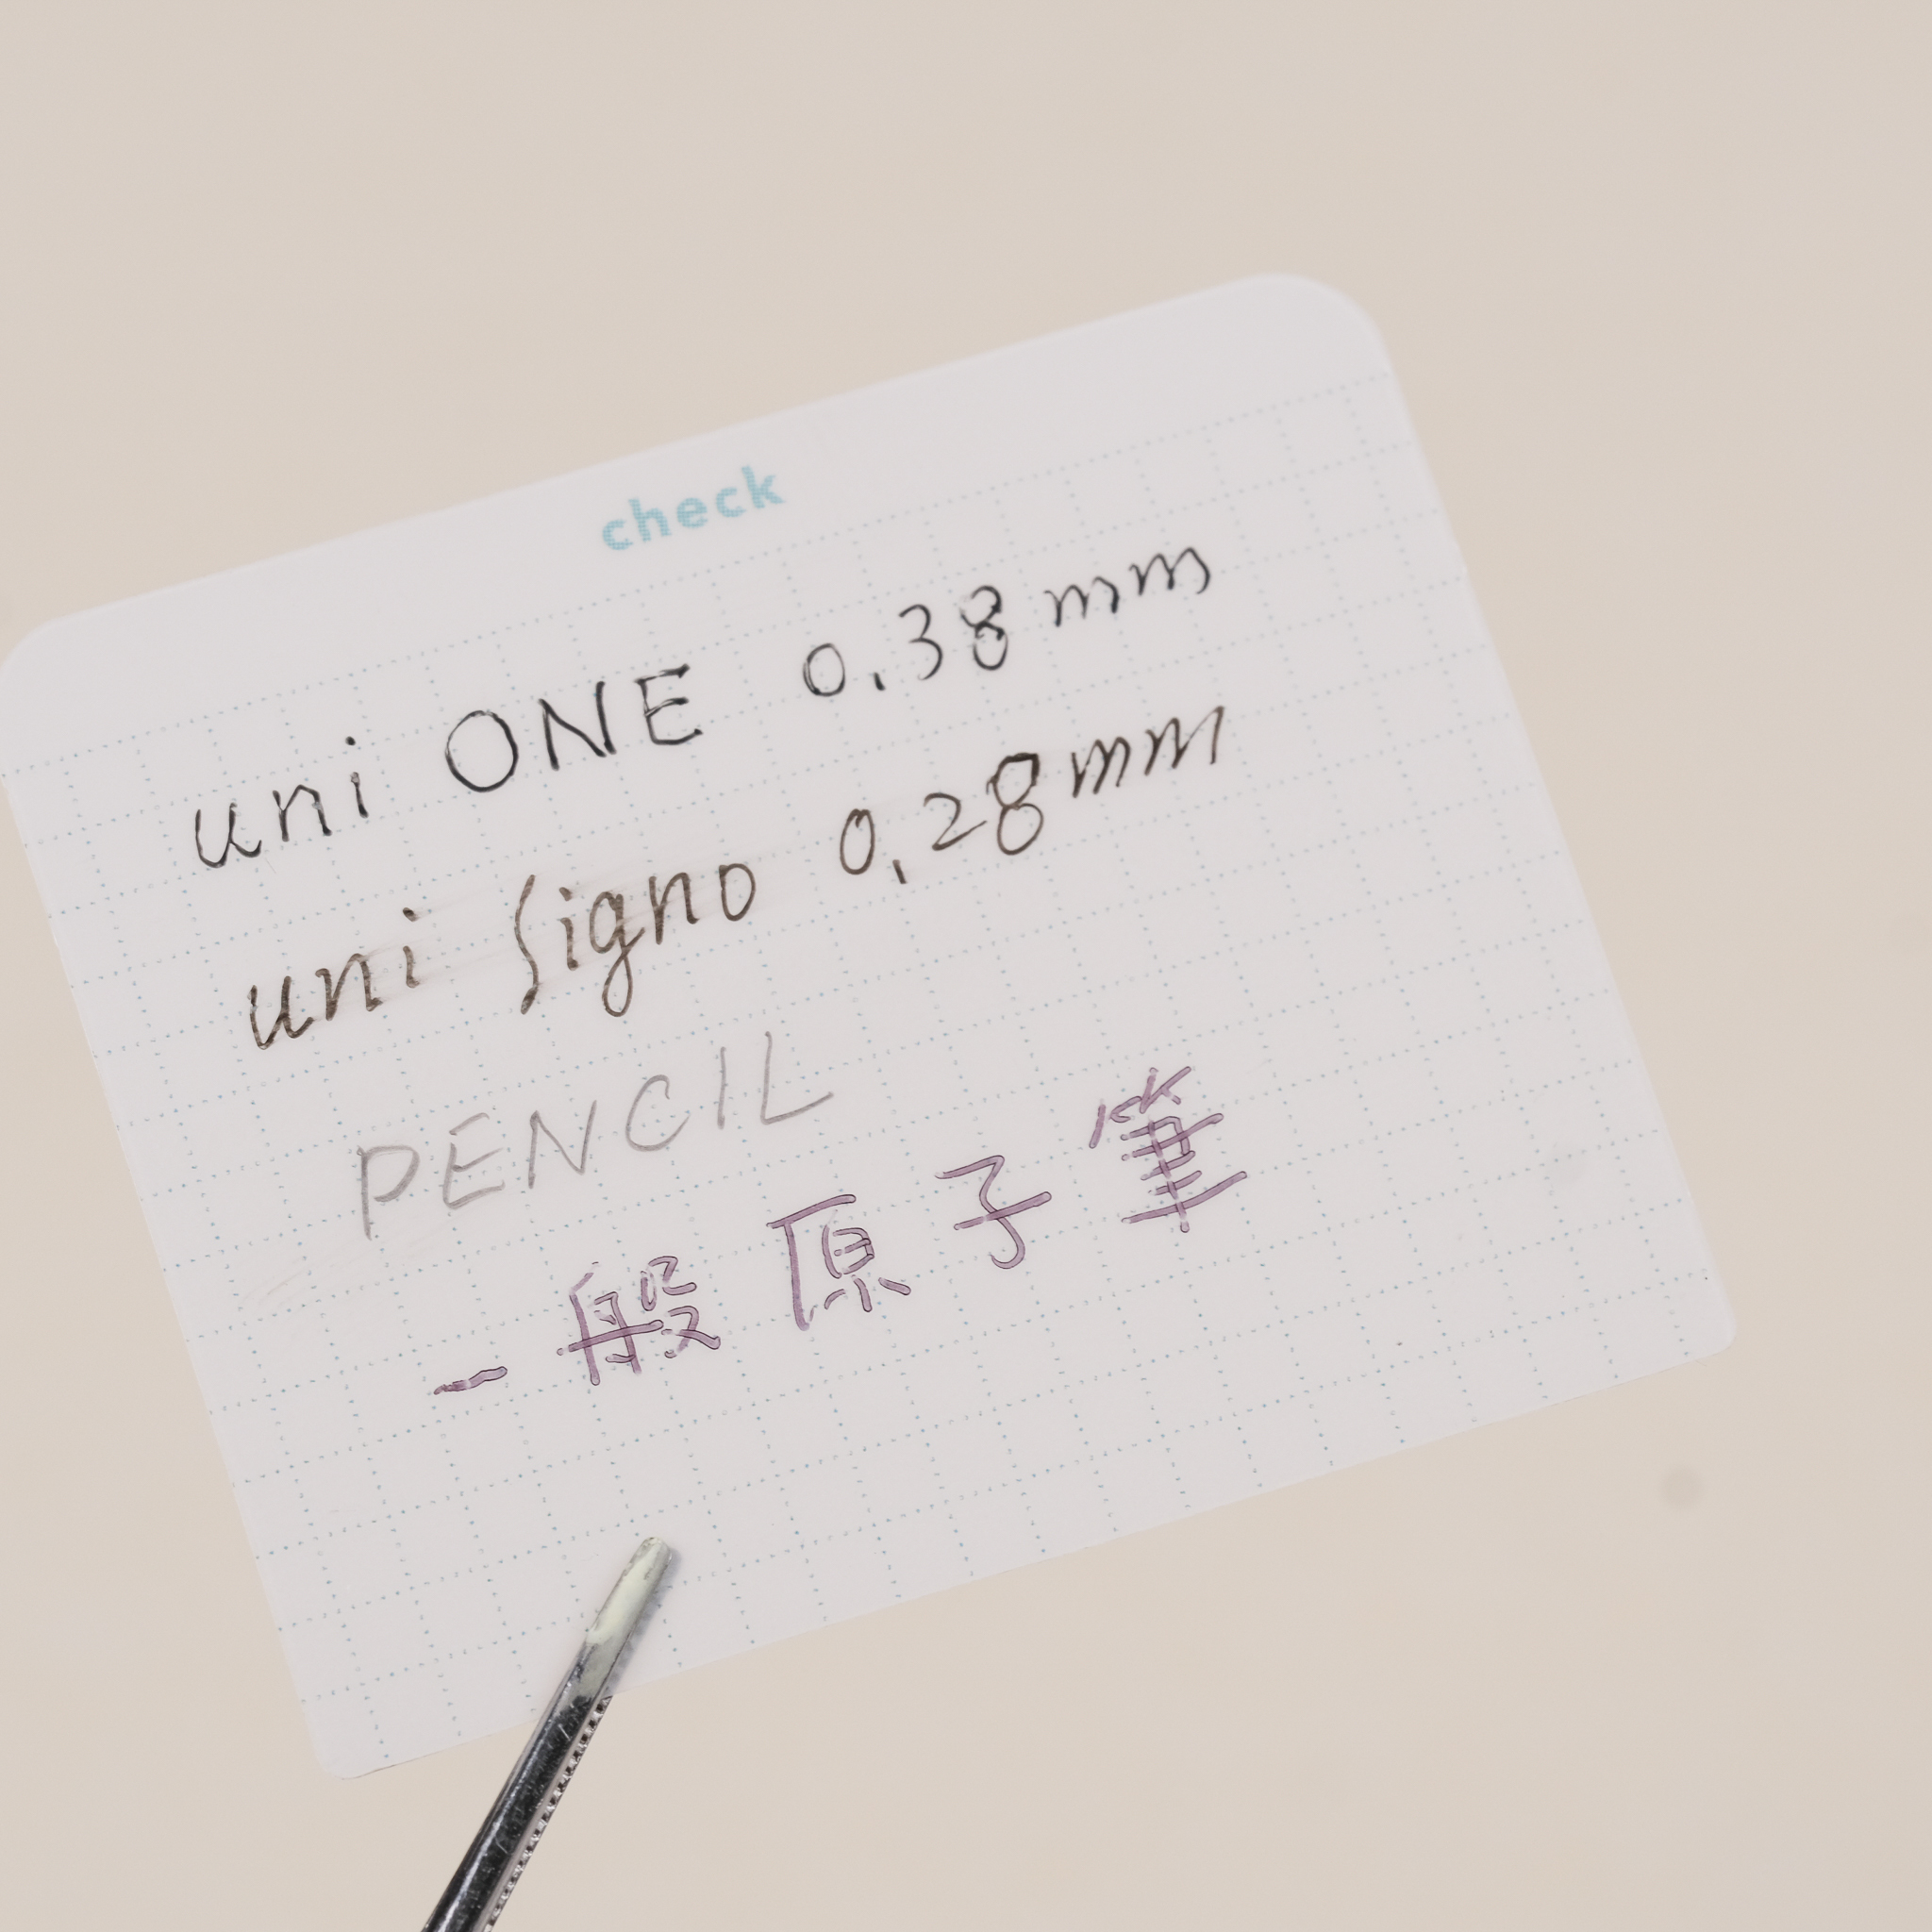 check
uni ONE 0.38 mm
uni Signo 0.28 mm
PENCIL
一般原子筆